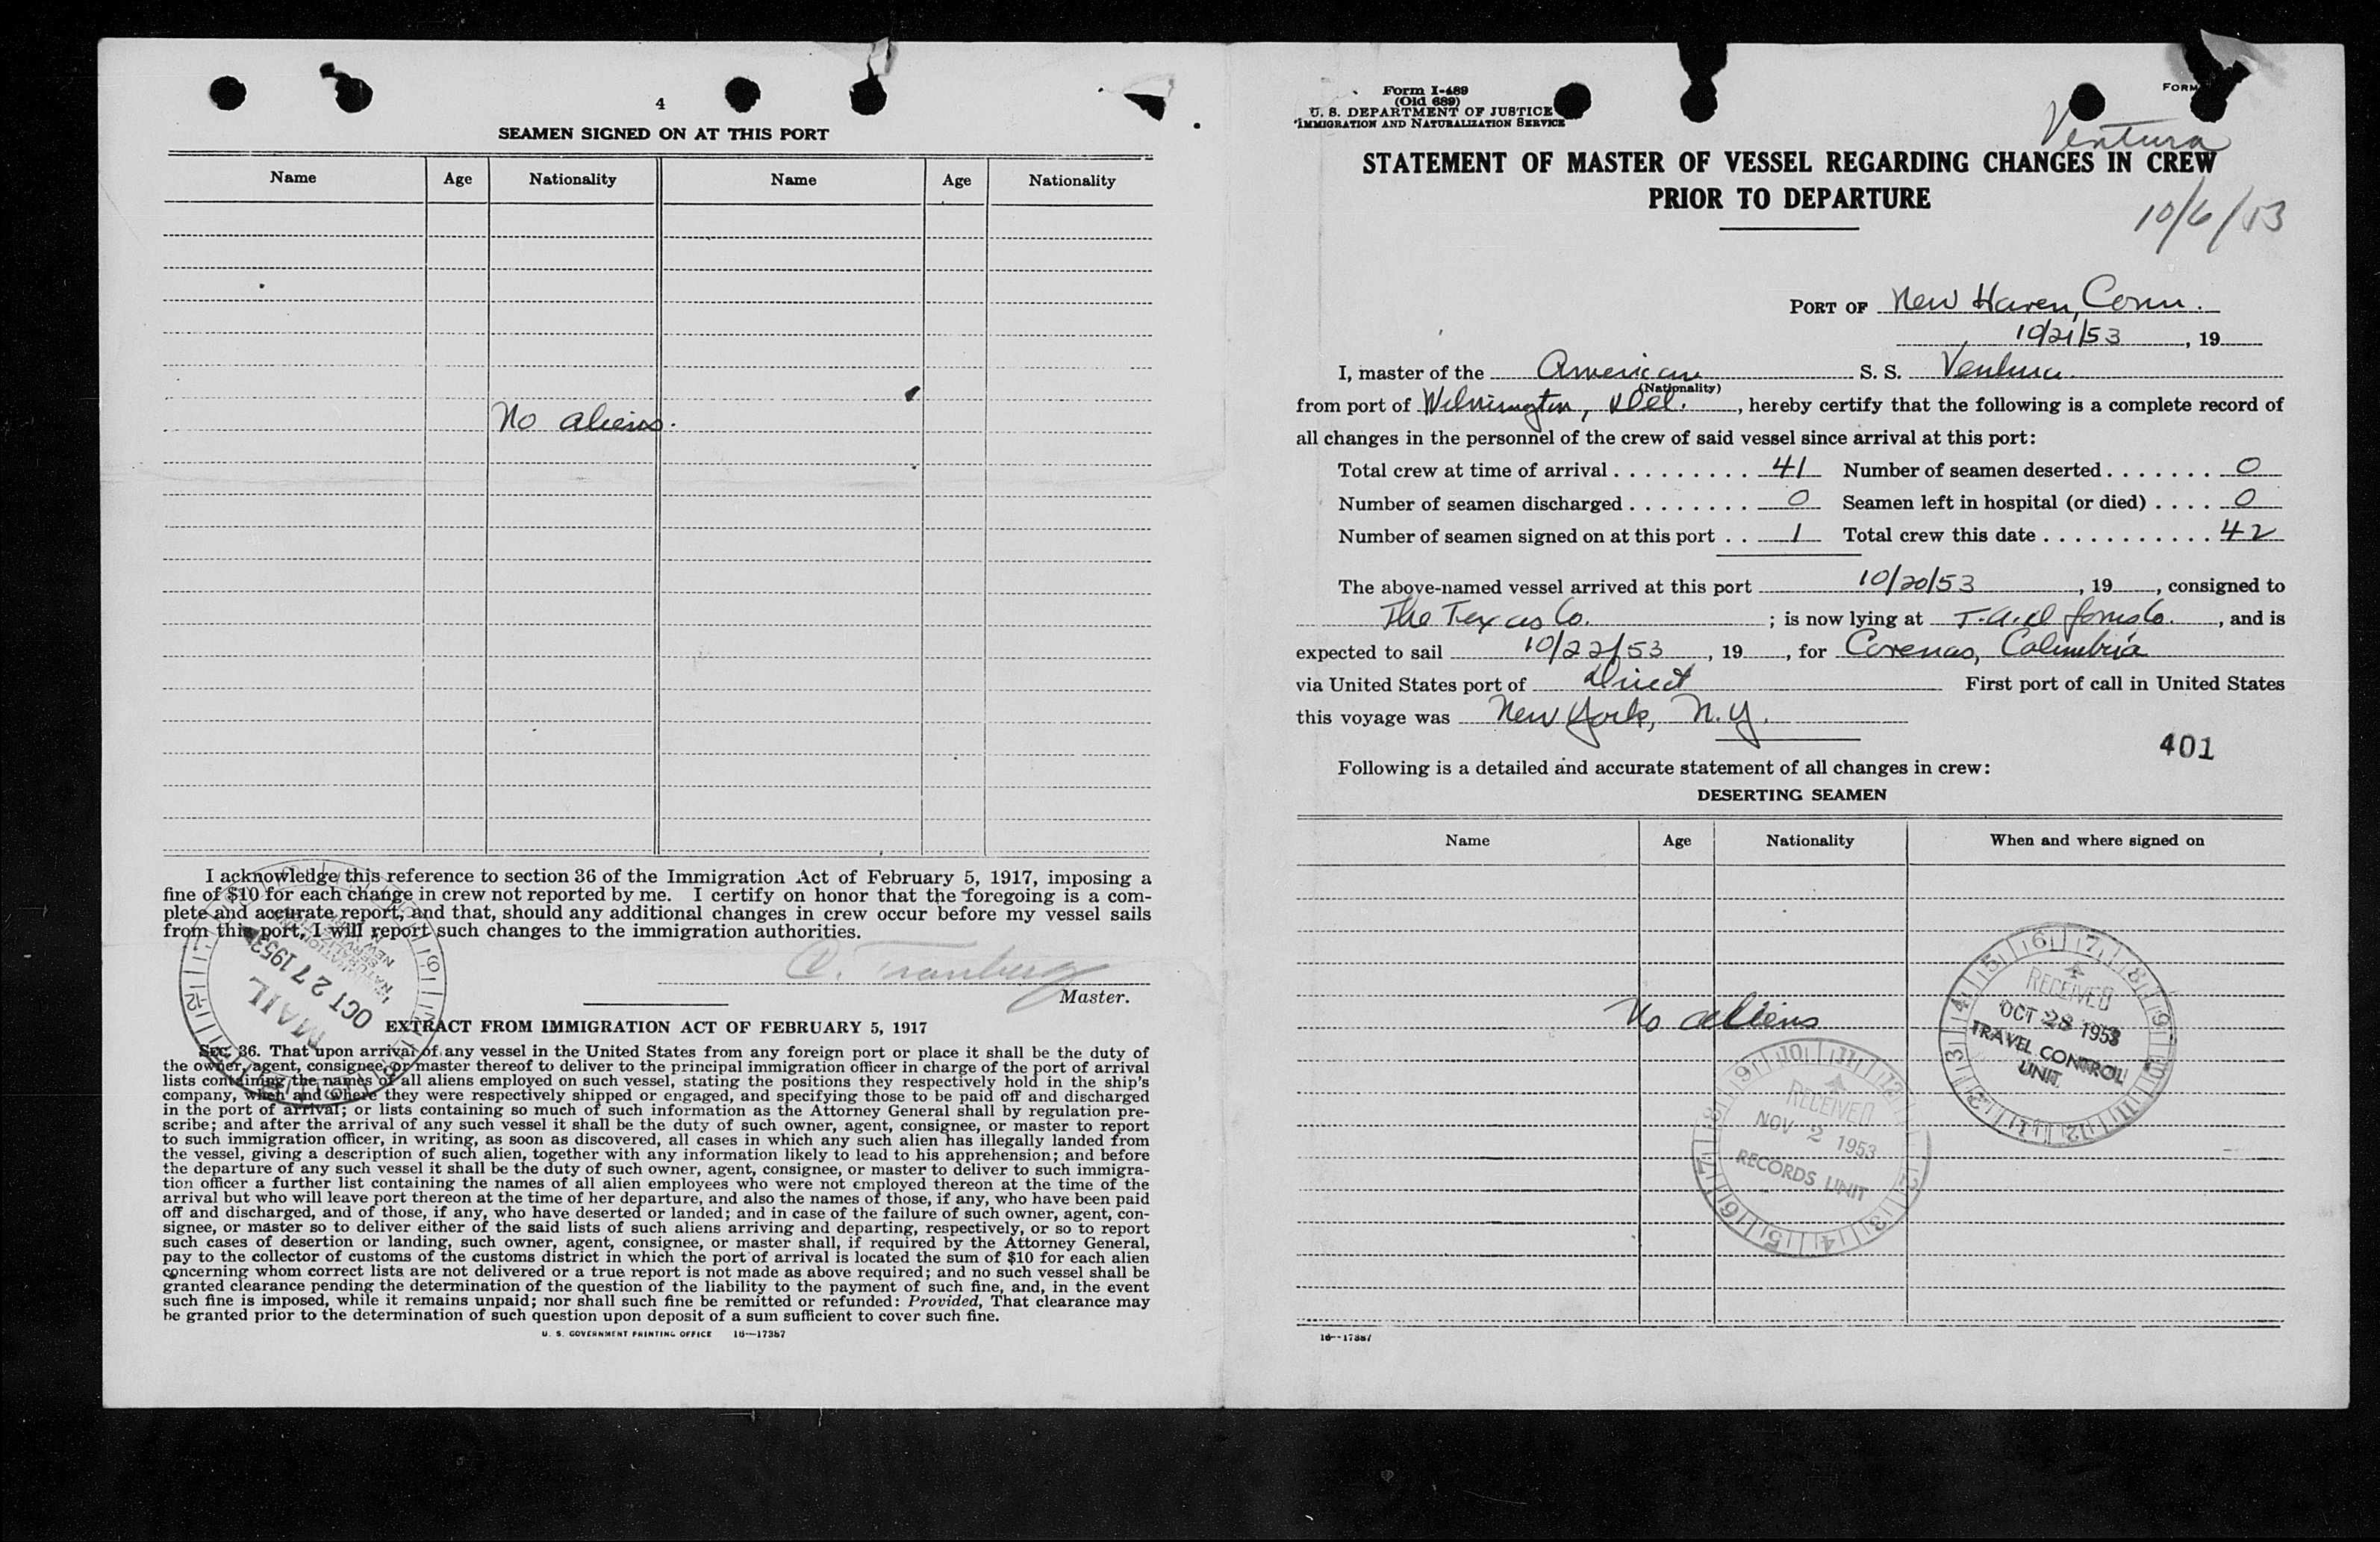 4
SEAMEN SIGNED ON AT THIS PORT
Name Age Nationality Name Age Nationality
No aliens.
I acknowledge this reference to section 36 of the Immigration Act of February 5, 1917, imposing a
fine of $10 for each change in crew not reported by me. I certify on honor that the foregoing is a com-
plete and accurate report, and that, should any additional changes in crew occur before my vessel sails
from this port, I will report such changes to the immigration authorities.
MAIL
OCT 27 1953
Master.
EXTRACT FROM IMMIGRATION ACT OF FEBRUARY 5, 1917
SEC. 36. That upon arrival of any vessel in the United States from any foreign port or place it shall be the duty of
the owner, agent, consignee, or master thereof to deliver to the principal immigration officer in charge of the port of arrival
lists containing the names of all aliens employed on such vessel, stating the positions they respectively hold in the ship's
company, when and where they were respectively shipped or engaged, and specifying those to be paid off and discharged
in the port of arrival; or lists containing so much of such information as the Attorney General shall by regulation pre-
scribe; and after the arrival of any such vessel it shall be the duty of such owner, agent, consignee, or master to report
to such immigration officer, in writing, as soon as discovered, all cases in which any such alien has illegally landed from
the vessel, giving a description of such alien, together with any information likely to lead to his apprehension; and before
the departure of any such vessel it shall be the duty of such owner, agent, consignee, or master to deliver to such immigra-
tion officer a further list containing the names of all alien employees who were not employed thereon at the time of the
arrival but who will leave port thereon at the time of her departure, and also the names of those, if any, who have been paid
off and discharged, and of those, if any, who have deserted or landed; and in case of the failure of such owner, agent, con-
signee, or master so to deliver either of the said lists of such aliens arriving and departing, respectively, or so to report
such cases of desertion or landing, such owner, agent, consignee, or master shall, if required by the Attorney General,
pay to the collector of customs of the customs district in which the port of arrival is located the sum of $10 for each alien
concerning whom correct lists are not delivered or a true report is not made as above required; and no such vessel shall be
granted clearance pending the determination of the question of the liability to the payment of such fine, and, in the event
such fine is imposed, while it remains unpaid; nor shall such fine be remitted or refunded: Provided, That clearance may
be granted prior to the determination of such question upon deposit of a sum sufficient to cover such fine.
U. S. GOVERNMENT PRINTING OFFICE 16—17387
Form I-489
(Old 689)
U. S. DEPARTMENT OF JUSTICE
IMMIGRATION AND NATURALIZATION SERVICE
FORM
Ventura
STATEMENT OF MASTER OF VESSEL REGARDING CHANGES IN CREW
PRIOR TO DEPARTURE
10/6/53
PORT OF New Haven, Conn.
10/21/53, 19
I, master of the American S. S. Ventura
(Nationality)
from port of Wilmington, Del., hereby certify that the following is a complete record of
all changes in the personnel of the crew of said vessel since arrival at this port:
Total crew at time of arrival 41 Number of seamen deserted 0
Number of seamen discharged 0 Seamen left in hospital (or died) 0
Number of seamen signed on at this port 1 Total crew this date 42
The above-named vessel arrived at this port 10/20/53, 19, consigned to
The Texas Co.; is now lying at T.A.D. Jones Co., and is
expected to sail 10/22/53, 19, for Covenas, Columbia
via United States port of Direct First port of call in United States
this voyage was New York, N.Y.
401
Following is a detailed and accurate statement of all changes in crew:
DESERTING SEAMEN
Name Age Nationality When and where signed on
No aliens
RECEIVED
OCT 28 1953
TRAVEL CONTROL
UNIT
RECEIVED
NOV 2 1953
RECORDS UNIT
16—17387